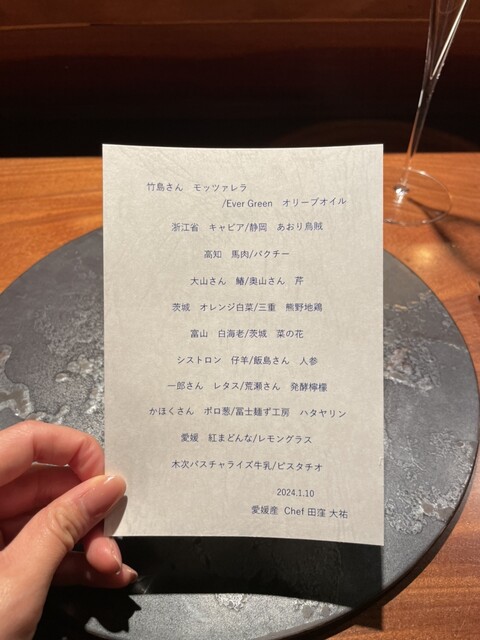 竹島さん　モッツァレラ
/Ever Green　オリーブオイル
浙江省　キャビア/静岡　あおり烏賊
高知　馬肉/パクチー
大山さん　鰆/奥山さん　芹
茨城　オレンジ白菜/三重　熊野地鶏
富山　白海老/茨城　菜の花
シストロン　仔羊/飯島さん　人参
一郎さん　レタス/荒瀬さん　発酵檸檬
かほくさん　ポロ葱/冨士麺ず工房　ハタヤリン
愛媛　紅まどんな/レモングラス
木次パスチャライズ牛乳/ピスタチオ
2024.1.10
愛媛産 Chef 田窪 大祐